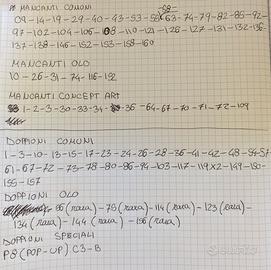 MANCANTI COMUNI
09-14-19-29-40-43-53-58-63-74-79-82-85-92-
97-102-104-106-108-110-121-126-127-131-132-136-
137-138-146-152-153-158-160
MANCANTI OLO
10-26-31-74-116-152
MANCANTI CONCEPT ART
1-2-3-30-33-34-36-64-67-70-71-72-109
DOPPIONI COMUNI
1-3-10-13-15-17-23-24-26-28-36-41-42-48-54-57
61-67-72-73-78-80-86-94-103-117-119x2-149-150-
155-157
DOPPIONI OLO
86(rara)-78(rara)-114(rara)-123(rara)-
134(rara)-144(rara)-156(rara)
DOPPIONI SPECIALI
P8(POP-UP) C3-B
subito